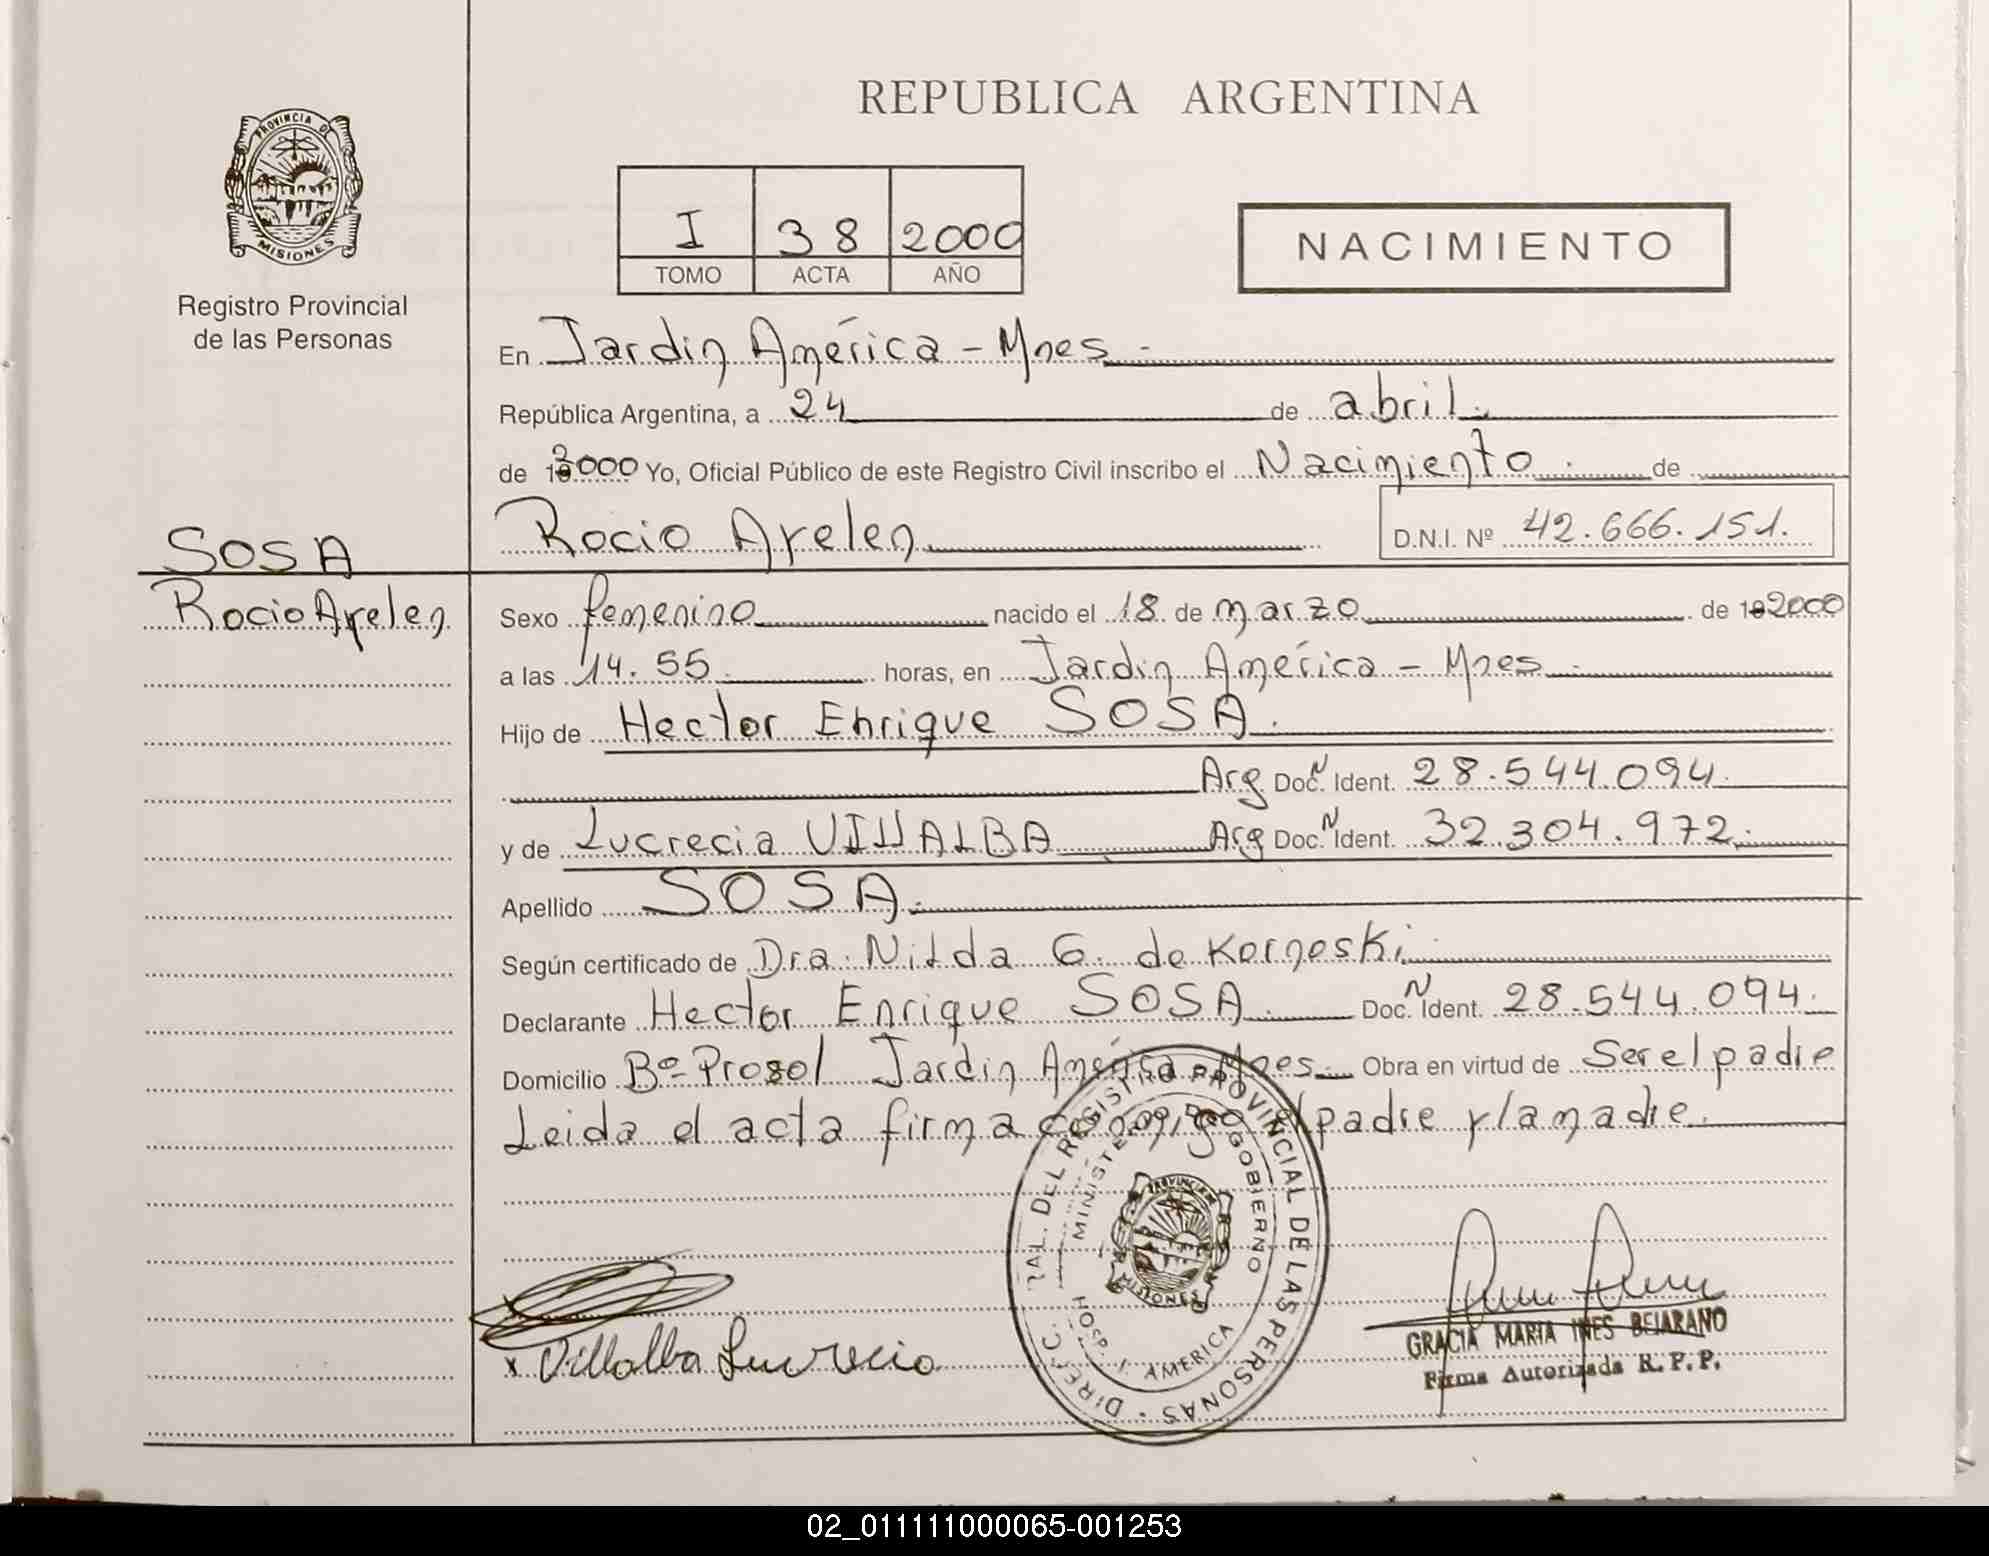 REPUBLICA ARGENTINA
PROVINCIA DE
MISIONES
Registro Provincial
de las Personas
I 38 2000
TOMO ACTA AÑO
NACIMIENTO
En Jardin América - Mnes.
República Argentina, a 24 de abril.
de 2000 Yo, Oficial Público de este Registro Civil inscribo el Nacimiento. de
Rocio Ayelen
D.N.I. Nº 42.666.151.
SOSA
Rocio Ayelen
Sexo femenino nacido el 18 de marzo de 2000
a las 14.55 horas, en Jardin América - Mnes.
Hijo de Hector Enrique SOSA.
Arg Doc. N Ident. 28.544.094.
y de Lucrecia VILLALBA Arg Doc. N Ident. 32.304.972.
Apellido SOSA.
Según certificado de Dra. Nilda G. de Korneski.
Declarante Hector Enrique SOSA. Doc. N Ident. 28.544.094.
Domicilio Bº Prosol Jardin América - Mnes Obra en virtud de Ser el padre
Leida el acta firma conmigo el padre y la madre.
DIREC. GRAL. DEL REGISTRO PROVINCIAL DE LAS PERSONAS
MINISTERIO DE GOBIERNO
PROVINCIA DE
MISIONES
HOSP. J. AMERICA
x
x Villalba Lucrecia
GRACIA MARIA INES BEJARANO
Firma Autorizada R. P. P.
02_011111000065-001253